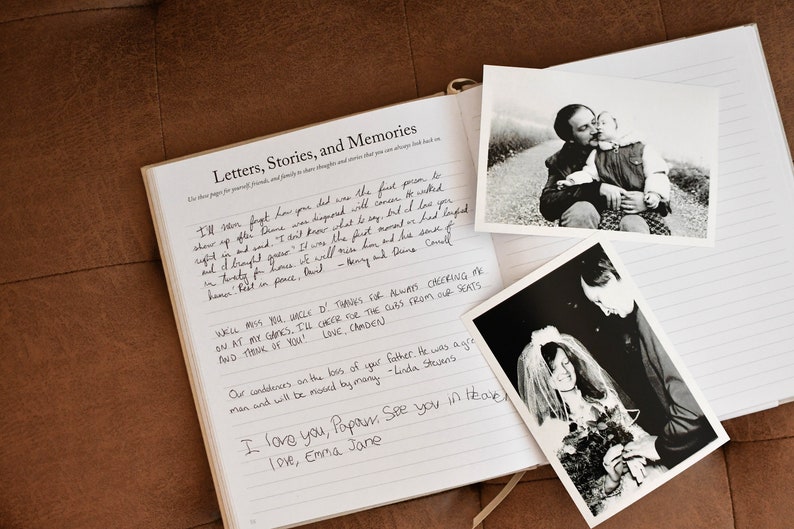 Letters, Stories, and Memories
Use these pages for yourself, friends, and family to share thoughts and stories that you can always look back on.
I'll never forget how your dad was the first person to
show up after Diane was diagnosed with cancer. He walked
right in and said, "I don't know what to say, but I love you
and I brought queso." It was the first moment we had laughed
in twenty four hours. We will miss him and his sense of
humor. Rest in peace, David - Henry and Diane Correll
WE'LL MISS YOU, UNCLE D! THANKS FOR ALWAYS CHEERING ME
ON AT MY GAMES. I'LL CHEER FOR THE CUBS FROM OUR SEATS
AND THINK OF YOU! LOVE, CAMDEN
Our condolences on the loss of your father. He was a gre
man and will be missed by many - Linda Stevens
I love you, Papaw. See you in Heaven
love, Emma Jane